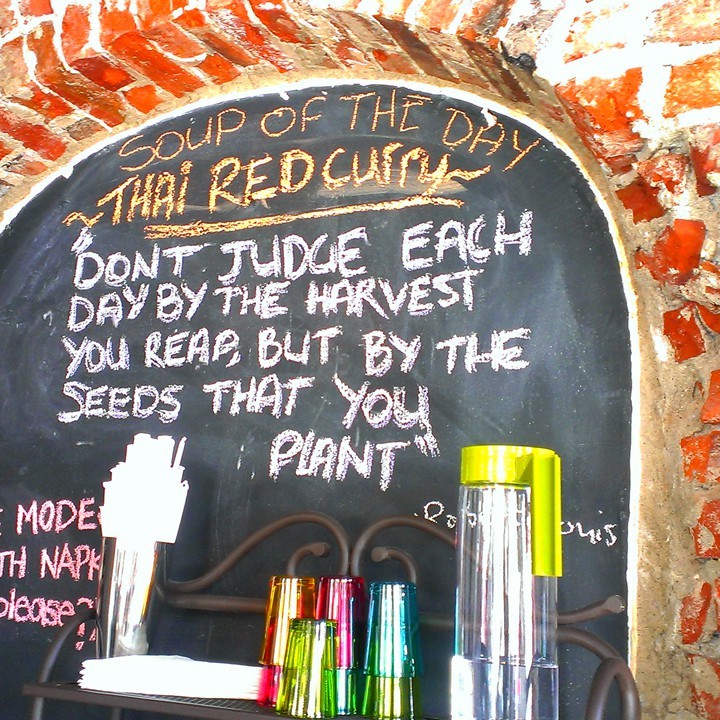 SOUP OF THE DAY
~THAI RED CURRY~
"DONT JUDGE EACH
DAY BY THE HARVEST
YOU REAP, BUT BY THE
SEEDS THAT YOU
PLANT"
MODE
NAPK
please